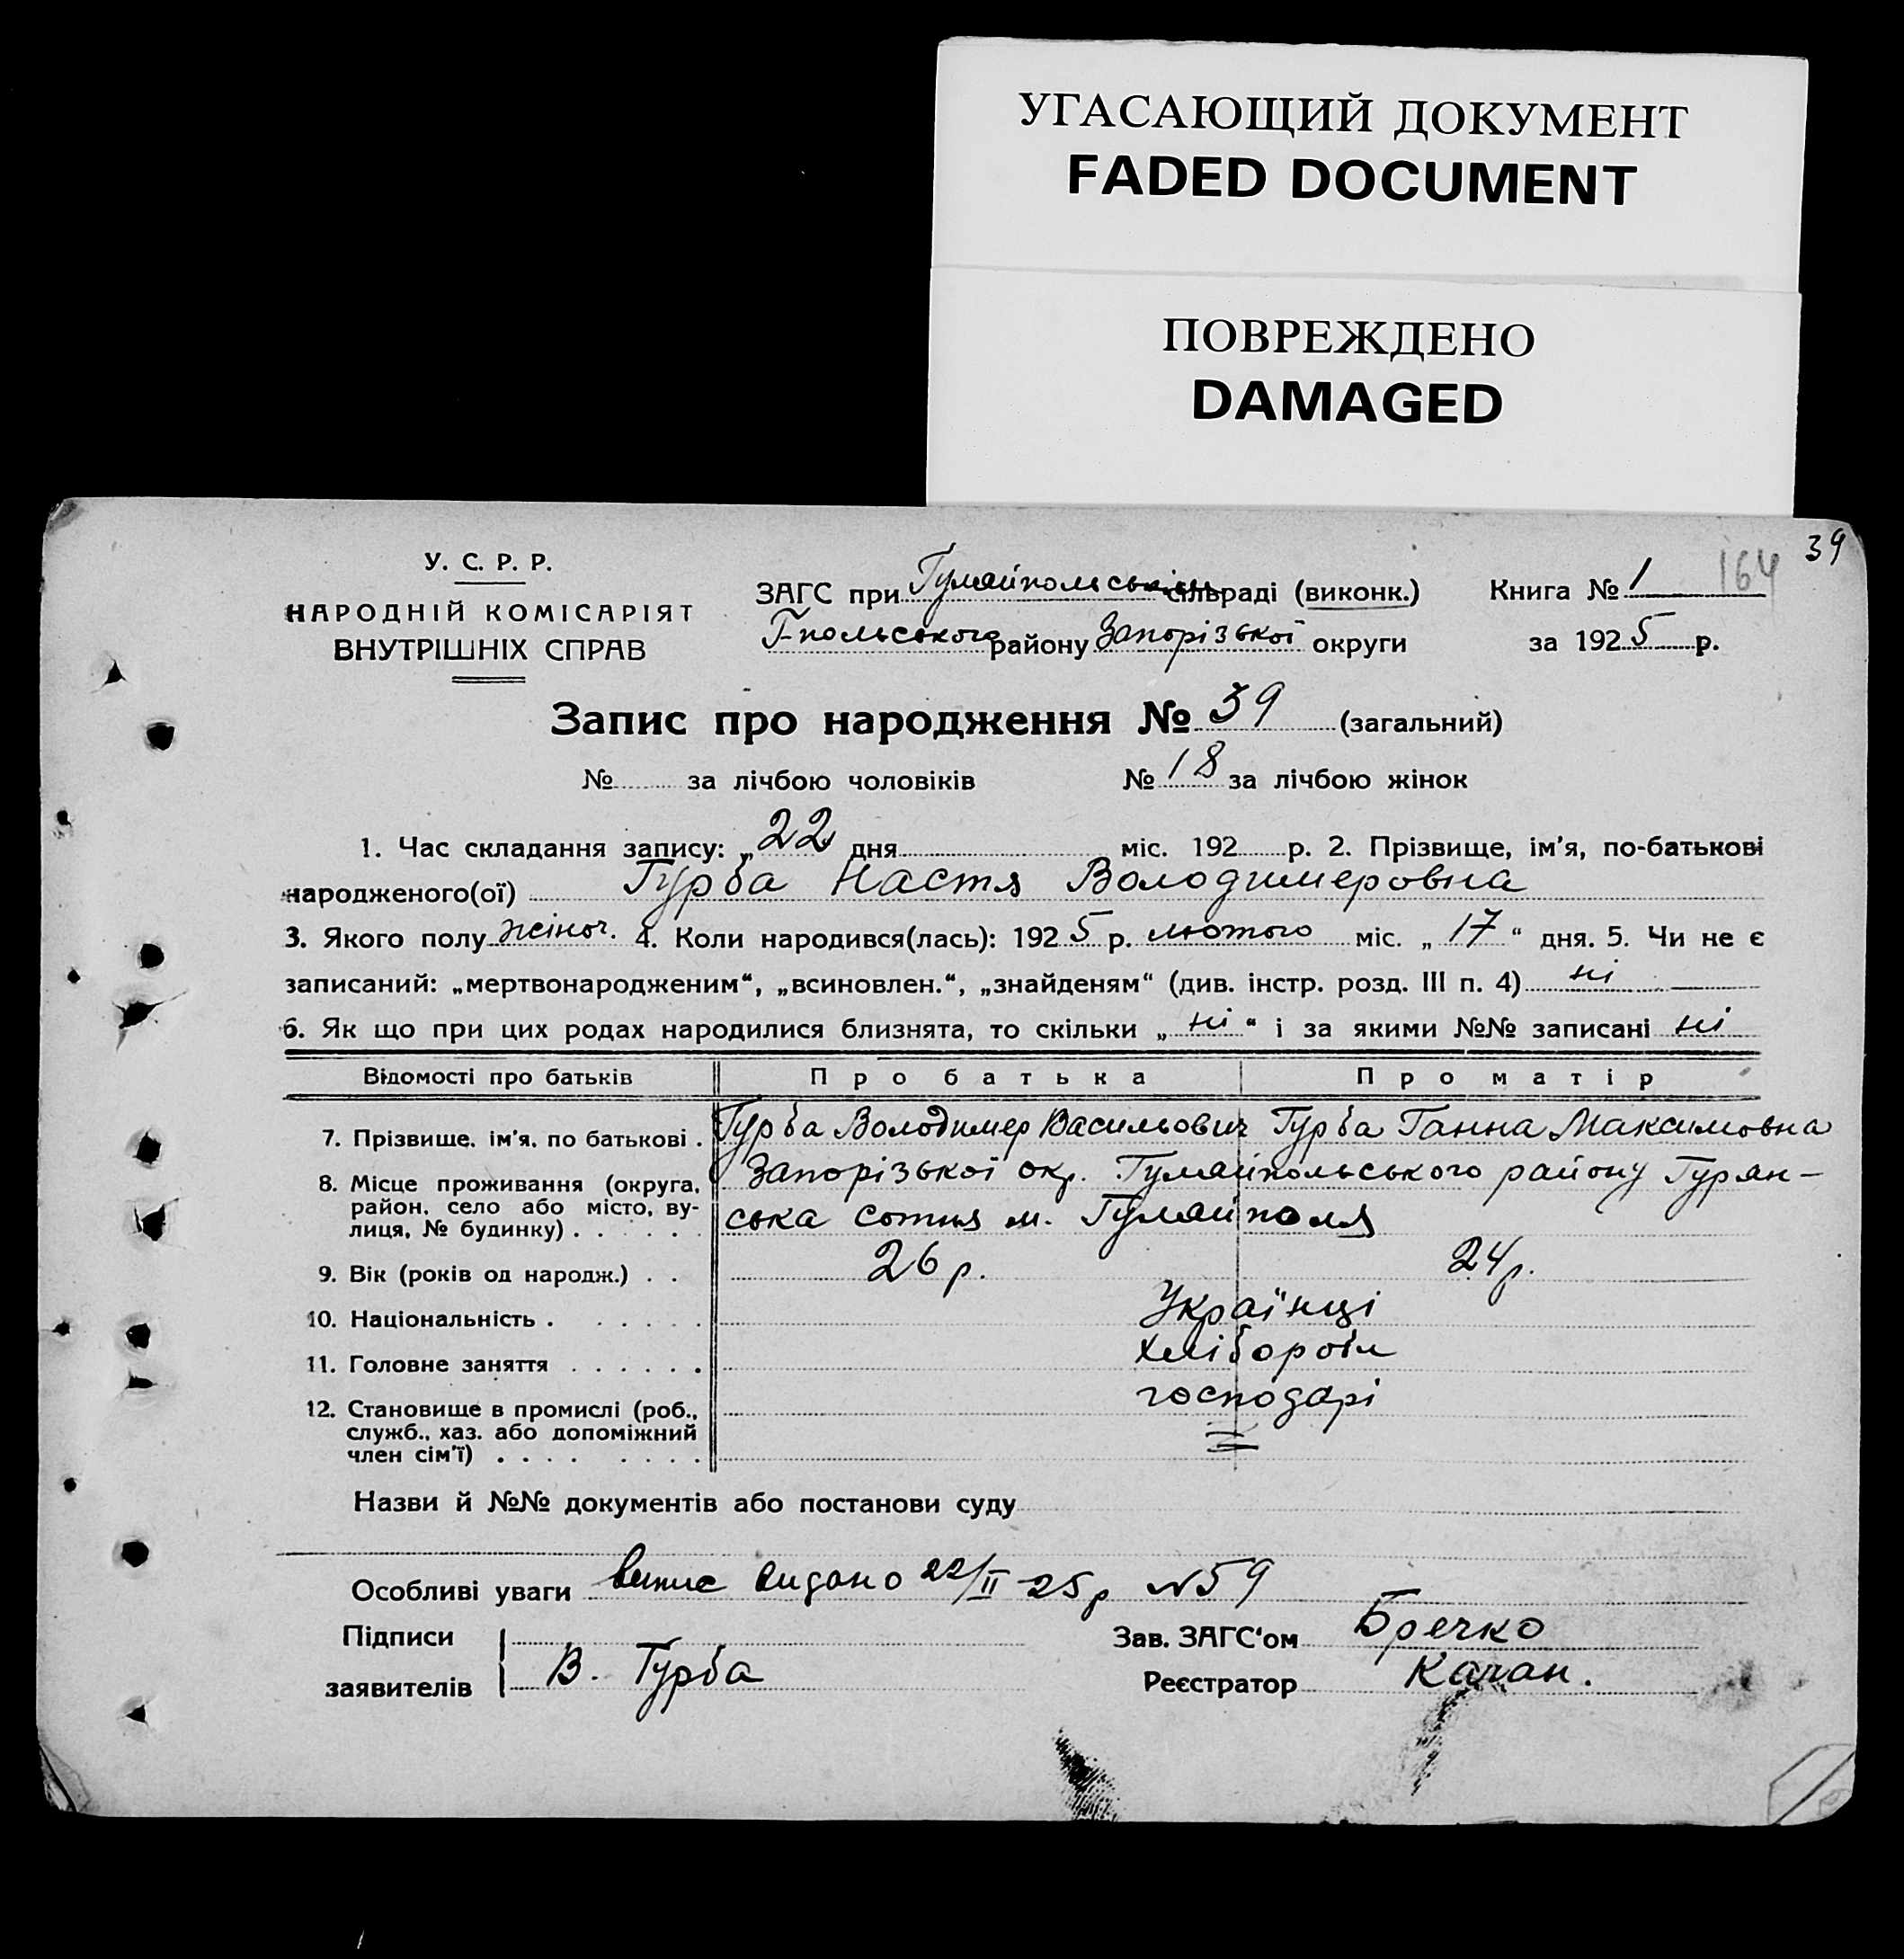 УГАСАЮЩИЙ ДОКУМЕНТ
FADED DOCUMENT
ПОВРЕЖДЕНО
DAMAGED
39
164
У. С. Р. Р.
НАРОДНІЙ КОМІСАРІЯТ
ВНУТРІШНІХ СПРАВ
ЗАГС при Гуляйпольськім сільраді (виконк.)
Г-польського району Запорізької округи
Книга № 1
за 1925 р.
Запис про народження № 39 (загальний)
№ за лічбою чоловіків № 18 за лічбою жінок
1. Час складання запису: „22 дня міс. 192 р. 2. Прізвище, ім’я, по-батькові
народженого(ої) Турба Настя Володимеровна
3. Якого полу жіноч. 4. Коли народився(лась): 1925 р. лютого міс. „17“ дня. 5. Чи не є
записаний: „мертвонародженим“, „всиновлен.“, „знайденям“ (див. інстр. розд. III п. 4) ні
6. Як що при цих родах народилися близнята, то скільки „ні“ і за якими №№ записані ні
Відомості про батьків Про батька Про матір
7. Прізвище, ім’я, по батькові . Турба Володимер Васильович Турба Ганна Максимовна
8. Місце проживання (округа, район, село або місто, вулиця, № будинку) . . . . . .
Запорізької окр. Гуляйпольського району Гурян-
ська сотня м. Гуляйполя
9. Вік (років од народж.) . . 26 р. 24 р.
10. Національність . . . . . . Українці
11. Головне заняття . . . . . . хлібороби
12. Становище в промислі (роб., служб., хаз. або допоміжний член сім’ї) . . . . . . . .
господарі
Назви й №№ документів або постанови суду
Особливі уваги випис видано 22/II-25р №59
Підписи
заявителів В. Турба
Зав. ЗАГС‘ом Бречко
Реєстратор Качан.